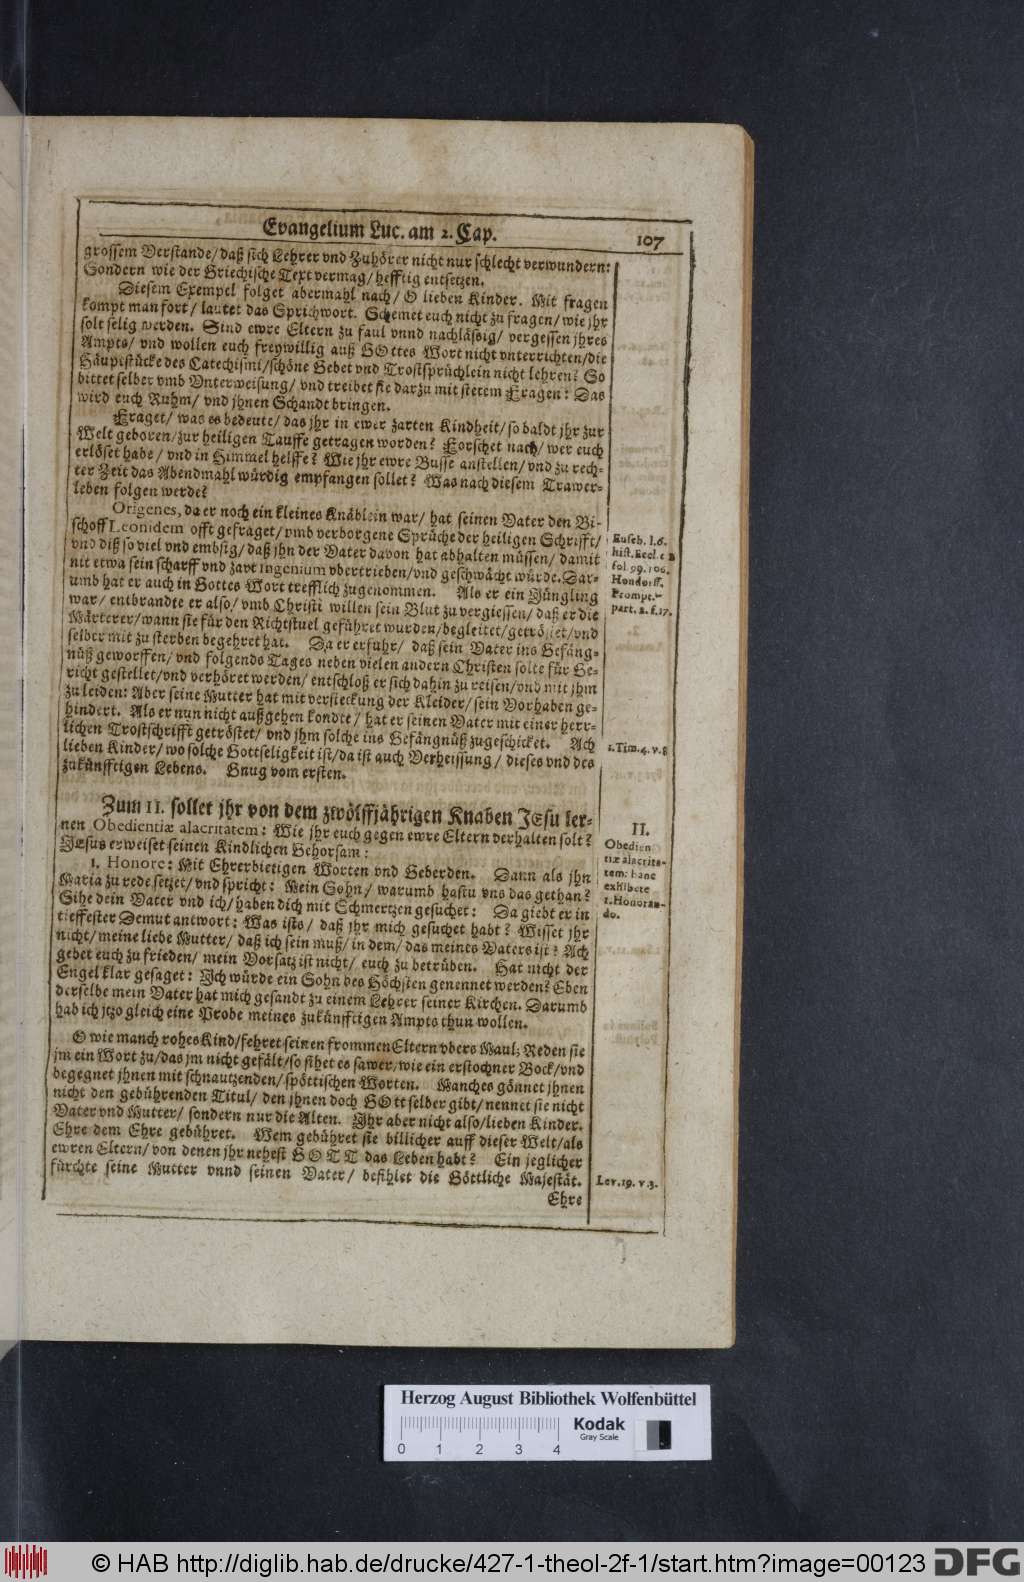 Evangelium Luc. am 2. Cap.
107
grossem Verstande/ daß sich Lehrer vnd Zuhörer nicht nur schlecht verwundern:
Sondern wie der Griechische Text vermag/ hefftig entsetzen.
Diesem Exempel folget abermahl nach/ O lieben Kinder. Mit fragen
kompt man fort/ lautet das Sprichwort. Schemet euch nicht zu fragen/ wie jhr
solt selig werden. Sind ewre Eltern zu faul vnnd nachlässig/ vergessen jhres
Ampts/ vnd wollen euch freywillig auß GOttes Wort nicht vnterrichten/ die
Häuptstücke des Catechismi/ schöne Gebet vnd Trostsprüchlein nicht lehren? So
bittet selber vmb Vnterweisung/ vnd treibet sie darzu mit stetem Fragen: Das
wird euch Ruhm/ vnd jhnen Schandt bringen.
Fraget/ was es bedeute/ das jhr in ewer zarten Kindheit/ so baldt jhr zur
Welt geboren/ zur heiligen Tauffe getragen worden? Forschet nach/ wer euch
erlöset habe/ vnd in Himmel helffe? Wie jhr ewre Busse anstellen/ vnd zu rech-
ter Zeit das Abendmahl würdig empfangen sollet? Was nach diesem Trawer-
leben folgen werde?
Origenes, da er noch ein kleines Knäblein war/ hat seinen Vater den Bi-
schoff Leonidem offt gefraget/ vmb verborgene Sprüche der heiligen Schrifft/
vnd diß so viel vnd embsig/ daß jhn der Vater davon hat abhalten müssen/ damit
nit etwa sein scharff vnd zart ingenium vbertrieben/ vnd geschwächt würde. Dar-
umb hat er auch in Gottes Wort trefflich zugenommen. Als er ein Jüngling
war/ entbrandte er also/ vmb Christi willen sein Blut zu vergiessen/ daß er die
Märterer/ wann sie für den Richtstuel geführet wurden/ begleitet/ getröstet/ vnd
selber mit zu sterben begehret hat. Da er erfuhr/ daß sein Vater ins Gefäng-
nüß geworffen/ vnd folgends Tages neben vielen andern Christen solte für Ge-
richt gestellet/ vnd verhöret werden/ entschloß er sich dahin zu reisen/ vnd mit jhm
zu leiden: Aber seine Mutter hat mit versteckung der Kleider/ sein Vorhaben ge-
hindert. Als er nun nicht außgehen kondte/ hat er seinen Vater mit einer herr-
lichen Trostschrifft getröstet/ vnd jhm solche ins Gefängnüß zugeschicket. Ach
lieben Kinder/ wo solche Gottseligkeit ist/ da ist auch Verheissung/ dieses vnd des
zukünfftigen Lebens. Gnug vom ersten.
Euseb. l. 6.
hist. Eccl. c 2
fol 99. 106.
Hondorff.
Prompt.
part. 2. f. 17.
1. Tim. 4. v. 8
Zum II. sollet jhr von dem zwölffjährigen Knaben JEsu ler-
nen Obedientiæ alacritatem: Wie jhr euch gegen ewre Eltern verhalten solt?
JEsus erweiset seinen Kindlichen Gehorsam:
1. Honore: Mit Ehrerbietigen Worten vnd Geberden. Dann als jhn
Maria zu rede setzet/ vnd spricht: Mein Sohn/ warumb hastu vns das gethan?
Sihe dein Vater vnd ich/ haben dich mit Schmertzen gesuchet: Da giebt er in
tieffester Demut antwort: Was ists/ daß jhr mich gesuchet habt? Wisset jhr
nicht/ meine liebe Mutter/ daß ich sein muß/ in dem/ das meines Vaters ist? Ach
gebet euch zu frieden/ mein Vorsatz ist nicht/ euch zu betrüben. Hat nicht der
Engel klar gesaget: Ich würde ein Sohn des Höchsten genennet werden? Eben
derselbe mein Vater hat mich gesandt zu einem Lehrer seiner Kirchen. Darumb
hab ich jtzo gleich eine Probe meines zukünfftigen Ampts thun wollen.
II.
Obedien
tiæ alacrita-
tem: hanc
exhibete
1. Honoran-
do.
O wie manch rohes Kind/ fehret seinen frommen Eltern vbers Maul; Reden sie
jm ein Wort zu/ das jm nicht gefält/ so sihet es sawer/ wie ein erstochner Bock/ vnd
begegnet jhnen mit schnautzenden/ spöttischen Worten. Manches gönnet jhnen
nicht den gebührenden Titul/ den jhnen doch GOtt selber gibt/ nennet sie nicht
Vater vnd Mutter/ sondern nur die Alten. Ihr aber nicht also/ lieben Kinder.
Ehre dem Ehre gebühret. Wem gebühret sie billicher auff dieser Welt/ als
ewren Eltern/ von denen jhr nehest GOTT das Leben habt? Ein jeglicher
fürchte seine Mutter vnnd seinen Vater/ befihlet die Göttliche Majestät.
Lev. 19. v. 3.
Ehre
Herzog August Bibliothek Wolfenbüttel
0 1 2 3 4
Kodak
Gray Scale
© HAB http://diglib.hab.de/drucke/427-1-theol-2f-1/start.htm?image=00123
DFG